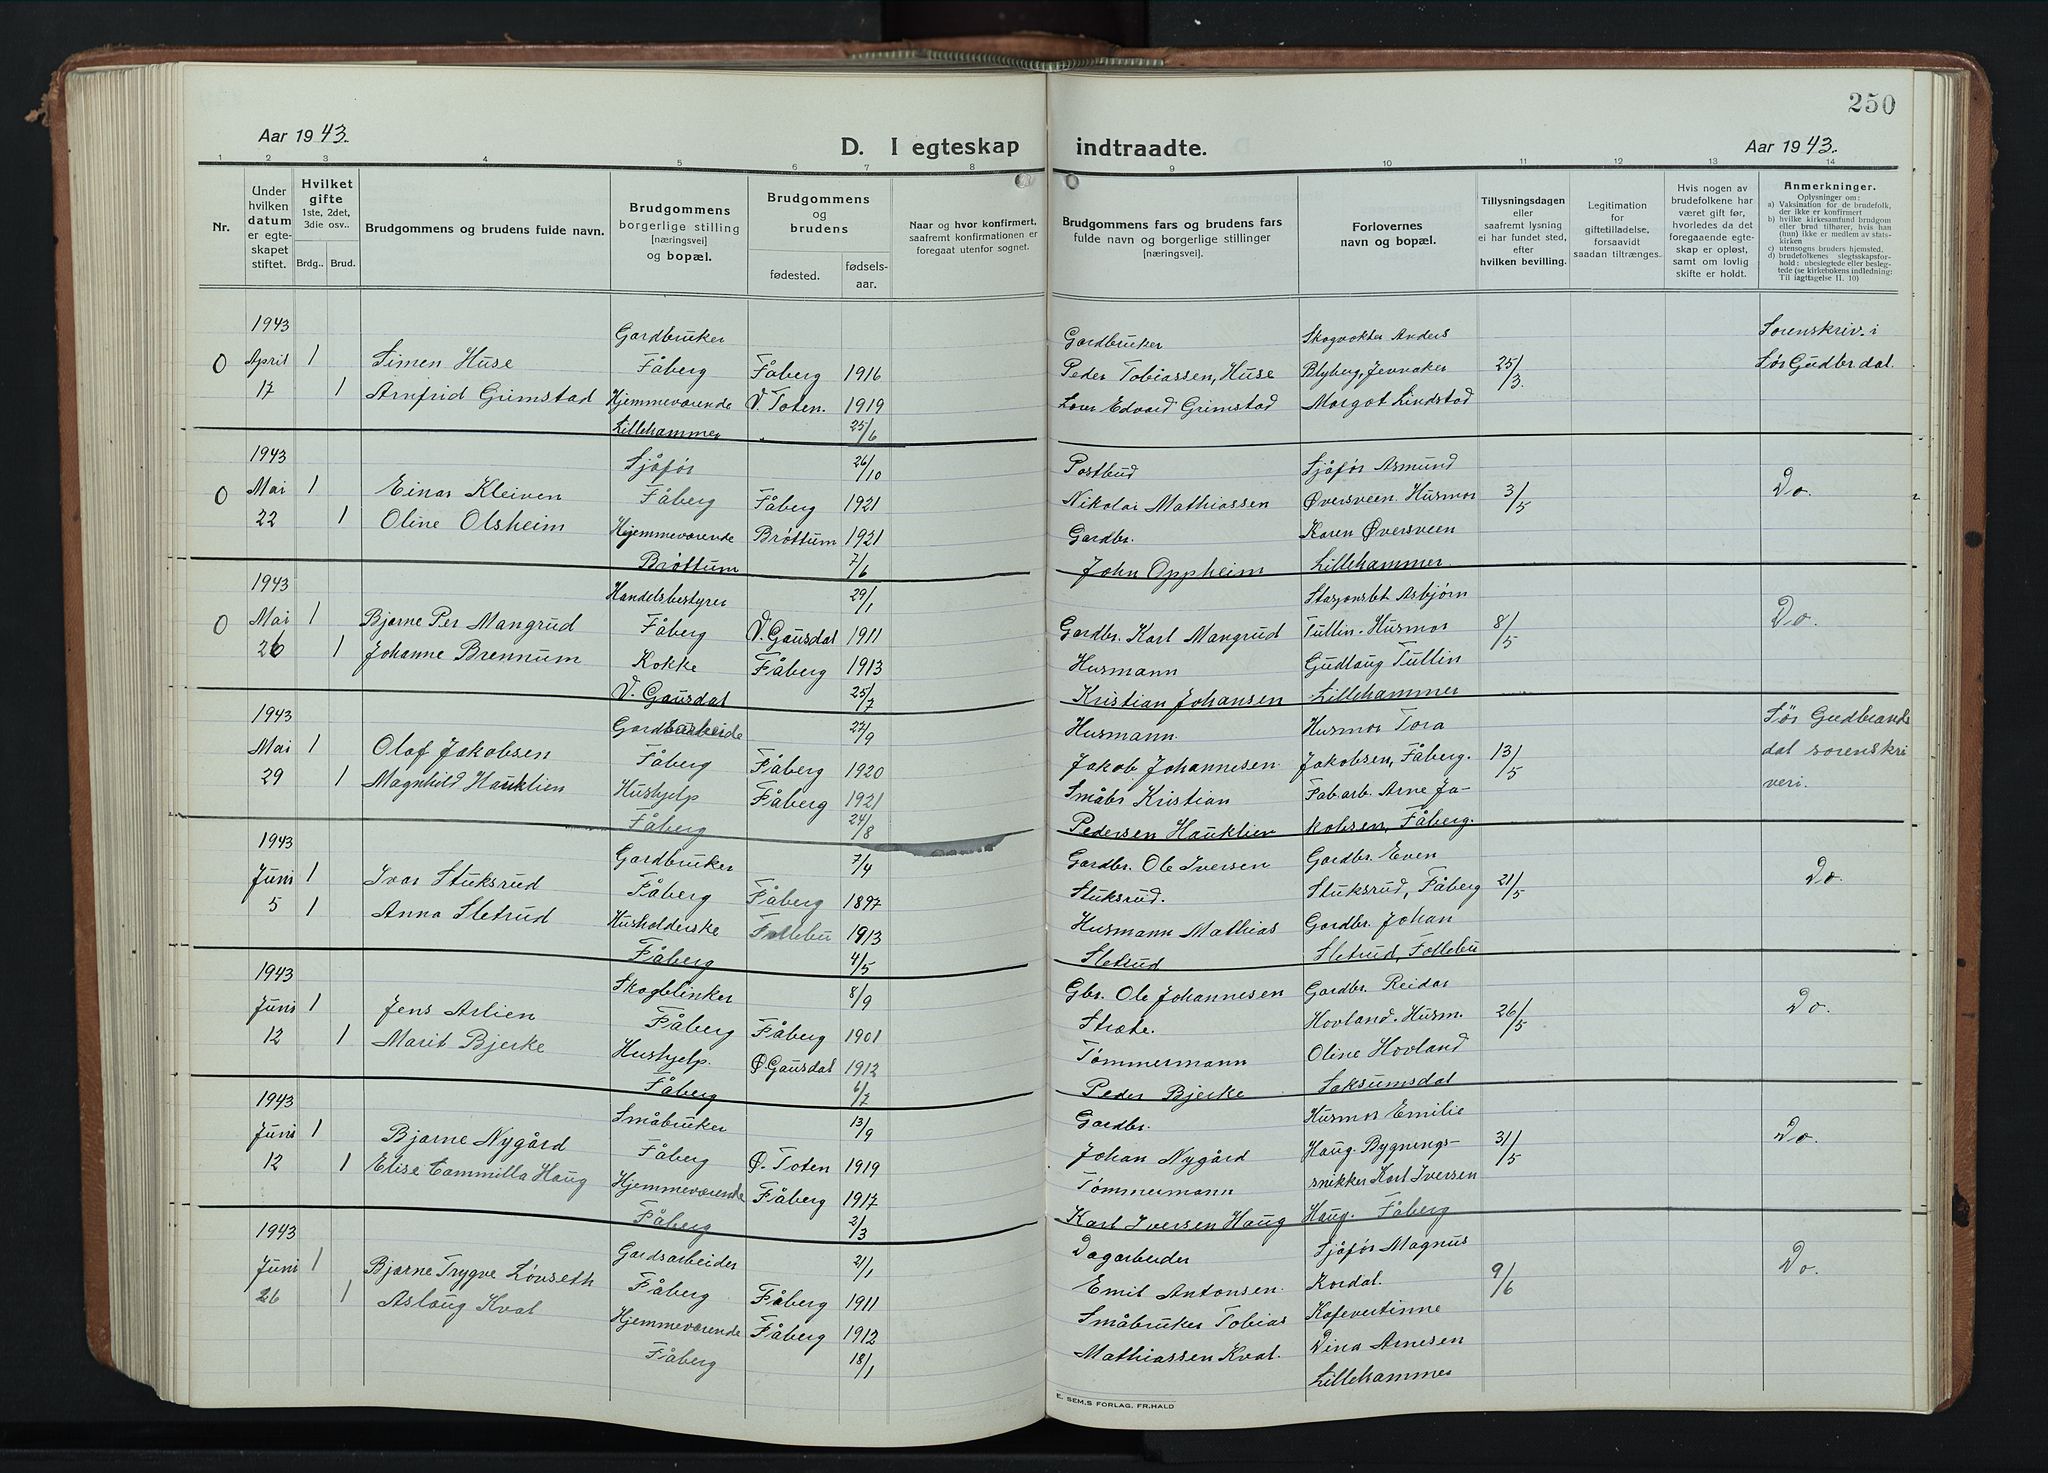 250
Aar 1943.
D. I egteskap indtraadte.
Aar 1943.
1 2 3 4 5 6 7 8 9 10 11 12 13 14
Nr.
Under hvilken datum er egteskapet stiftet.
Hvilket gifte
1ste, 2det, 3die osv..
Brdg.. Brud.
Brudgommens og brudens fulde navn.
Brudgommens borgerlige stilling [næringsvei] og bopæl.
Brudgommens og brudens
fødested.
fødsels-aar.
Naar og hvor konfirmert, saafremt konfirmationen er foregaat utenfor sognet.
Brudgommens fars og brudens fars fulde navn og borgerlige stillinger [næringsvei].
Forlovernes navn og bopæl.
Tillysningsdagen eller saafremt lysning ei har fundet sted, efter hvilken bevilling.
Legitimation for giftetilladelse, forsaavidt saadan tiltrænges.
Hvis nogen av brudefolkene har været gift før, hvorledes da det foregaaende egteskap er opløst, samt om lovlig skifte er holdt.
Anmerkninger.
Oplysninger om:
a) Vaksination for de brudefolk, der ikke er konfirmert
b) hvilke kirkesamfund brudgom eller brud tilhører, hvis han (hun) ikke er medlem av statskirken
c) utensogns bruders hjemsted.
d) brudefolkenes slegtsskapsforhold: ubeslegtede eller beslegtede (se kirkebokens indledning: Til iagttagelse II. 10)
1943 Gardbruker Gardbruker Skogvokter Anders Sorenskriv. i
0 April 1 Simen Huse Fåberg Fåberg 1916 Peder Tobiassen, Huse Blyberg, Jevnaker 25/3 Sør Gudbr.dal.
17 1 Arnfrid Grimstad Hjemmeværende V. Toten. 1919 Lars Edvard Grimstad Margot Lindstad
Lillehammer 25/6
1943 Sjåfør 26/10 Postbud Sjåfør Asmund
0 Mai 1 Einar Kleiven Fåberg Fåberg 1921 Nikolai Mathiassen Øversveen. Husmor 3/5 Do.
22 1 Oline Olsheim Hjemmeværende Brøttum 1921 Gardbr. Karen Øversveen
Brøttum 7/6 John Oppheim Lillehammer
1943 Handelsbestyrer 29/1 Stasjonsbt Asbjørn
0 Mai 1 Bjarne Per Mangrud Fåberg V. Gausdal 1911 Gardbr. Karl Mangrud Tullin. Husmor 8/5 Do.
26 1 Johanne Brennum Kokke Fåberg 1913 Husmann Gudlaug Tullin
V. Gausdal 25/7 Kristian Johansen Lillehammer
1943 27/9 Husmann. Husmor Tora Sør Gudbrands
Mai 1 Olaf Jakobsen Fåberg Fåberg 1920 Jakob Johannesen Jakobsen, Fåberg. 13/5 dal sorenskri
29 1 Magnhild Hauklien Hushjelp Fåberg 1921 Småbr Kristian Fab.arb. Arne Ja- veri.
Fåberg 24/8 Pedersen Hauklien kobsen, Fåberg.
1943 Gardbruker 7/4 Gardbr. Ole Iversen Gardbr. Even
Juni 1 Ivar Stuksrud Fåberg Fåberg 1897 Stuksrud. Stuksrud, Fåberg 21/5 Do.
5 1 Anna Sletrud Husholderske Follebu 1913 Husmann Mathias Gardbr. Johan
Fåberg 4/5 Sletrud Sletrud, Follebu
1943 Skogblinker 8/9 Gbr. Ole Johannesen Gardbr. Reidar
Juni 1 Jens Aslien Fåberg Fåberg 1901 Stræte. Hovland. Husm. 26/5 Do.
12 1 Marit Bjerke Hushjelp. Ø. Gausdal 1912 Tømmermann Oline Hovland
Fåberg 6/7 Peder Bjerke Saksumsdal
1943 Småbruker 13/9 Gardbr. Husmor Emilie
Juni 1 Bjarne Nygård Fåberg Ø. Toten 1919 Johan Nygård Haug. Bygnings- 31/5 Do.
12 1 Elise Cammilla Haug Hjemmeværende Fåberg 1917 Tømmermann snikker Karl Iversen
Fåberg 2/3 Karl Iversen Haug Haug. Fåberg
1943 Gardsarbeider 21/1 Dagarbeider Sjåfør Magnus
Juni 1 Bjarne Trygve Løvseth Fåberg Fåberg 1911 Emil Antonsen. Kordal. 9/6 Do.
26 1 Aslaug Kval Hjemmeværende Fåberg 1912 Småbruker Tobias Kafevertinne
Fåberg 18/1 Mathiassen Kval. Dina Arnesen
Lillehammer
E. SEM.S FORLAG, FR.HALD